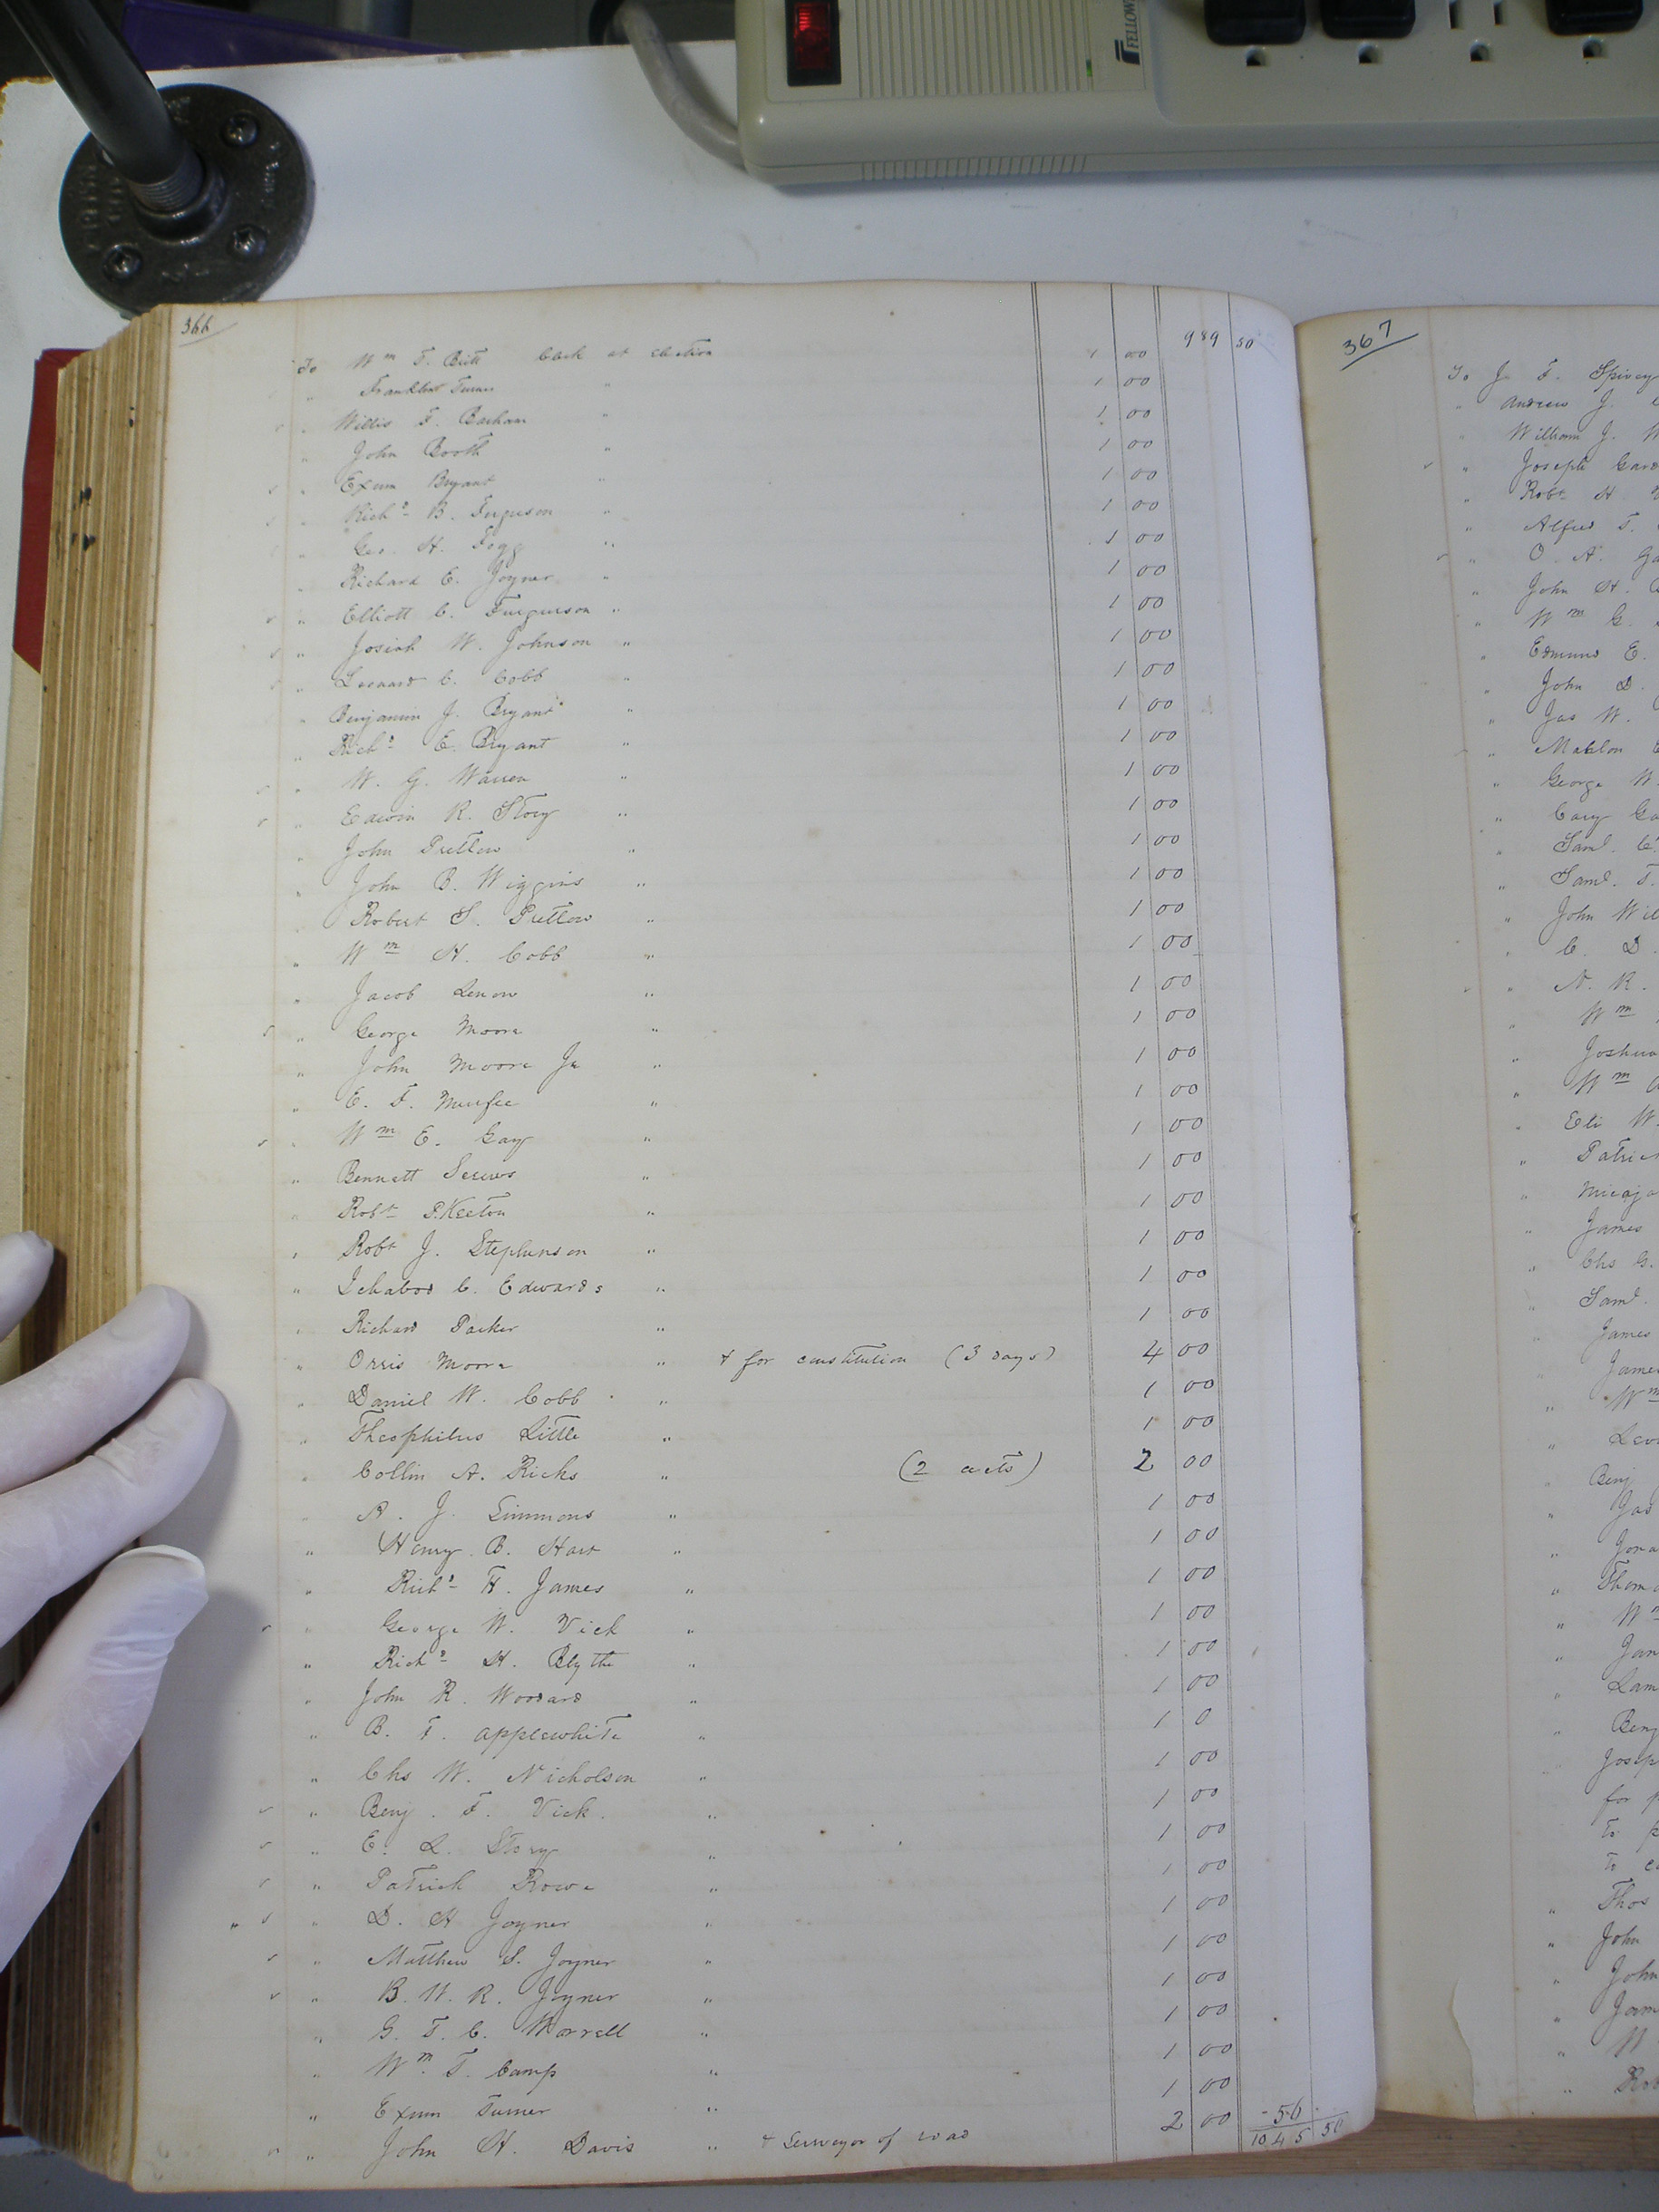 FELLOW
366
989 50
To Wm T. Britt Clerk at election 1 00
" Franklin Turner " 1 00
" Willis F. Barham " 1 00
" John Booth " 1 00
" Exum Bryant " 1 00
" Richd B. Ferguson " 1 00
" Geo. H. Fogg " 1 00
" Richard E. Joyner " 1 00
" Elliott C. Furgurson " 1 00
" Josiah W. Johnson " 1 00
" Leonard C. Cobb " 1 00
" Benjamin J. Bryant " 1 00
" Richd E. Bryant " 1 00
" W. G. Warren " 1 00
" Edwin R. Story " 1 00
" John Pretlow " 1 00
" John B. Wiggins " 1 00
" Robert S. Pretlow " 1 00
" Wm H. Cobb " 1 00
" Jacob Lenow " 1 00
" George Moore " 1 00
" John Moore Jr " 1 00
" E. F. Murfee " 1 00
" Wm E. Gay " 1 00
" Bennett Screws " 1 00
" Robt P. Keeton " 1 00
" Robt J. Stephenson " 1 00
" Ichabod C. Edwards " 1 00
" Richard Parker " 1 00
" Orris Moore " + for constitution (3 days) 4 00
" Daniel W. Cobb " 1 00
" Theophilus Little " 1 00
" Collin A. Ricks " (2 acts) 2 00
" A. J. Simmons " 1 00
" Henry B. Hart " 1 00
" Richd H. James " 1 00
" George W. Vick " 1 00
" Richd H. Blythe " 1 00
" John R. Woodard " 1 00
" B. F. Applewhite " 1 0
" Chs W. Nicholson " 1 00
" Benj. F. Vick. " 1 00
" E. L. Story " 1 00
" Patrick Rowe " 1 00
" D. H Joyner " 1 00
" Matthew S. Joyner " 1 00
" B. W. R. Joyner " 1 00
" G. T. C. Worrell " 1 00
" Wm. T. Camp " 1 00
" Exum Turner " 1 00
" John H. Davis " + Surveyor of road 2 00
56
1045 50
367
To J. F. Spivey
" Andrew J.
" William J. W
" Joseph Gard
" Robt H
" Alfred T.
" O. A. Ga
" John H.
" Wm G.
" Edmund E.
" John D.
" Jas W.
" Mahlon
" George W.
" Cary Ga
" Saml. C.
" Saml. T.
" John Wil
" C. D.
" N. R.
" Wm
" Joshua
" Wm
" Eli W.
" Patric
" Micaja
" James
" Chs G.
" Saml.
" James
James
" Wm
" Levi
Benj
" Jas
" Jona
" Thoma
" Wm
" Jam
" Lam
" Benj
Josep
for p
to p
to c
" Thos
" John
" John
" Jam
" W
" Rob